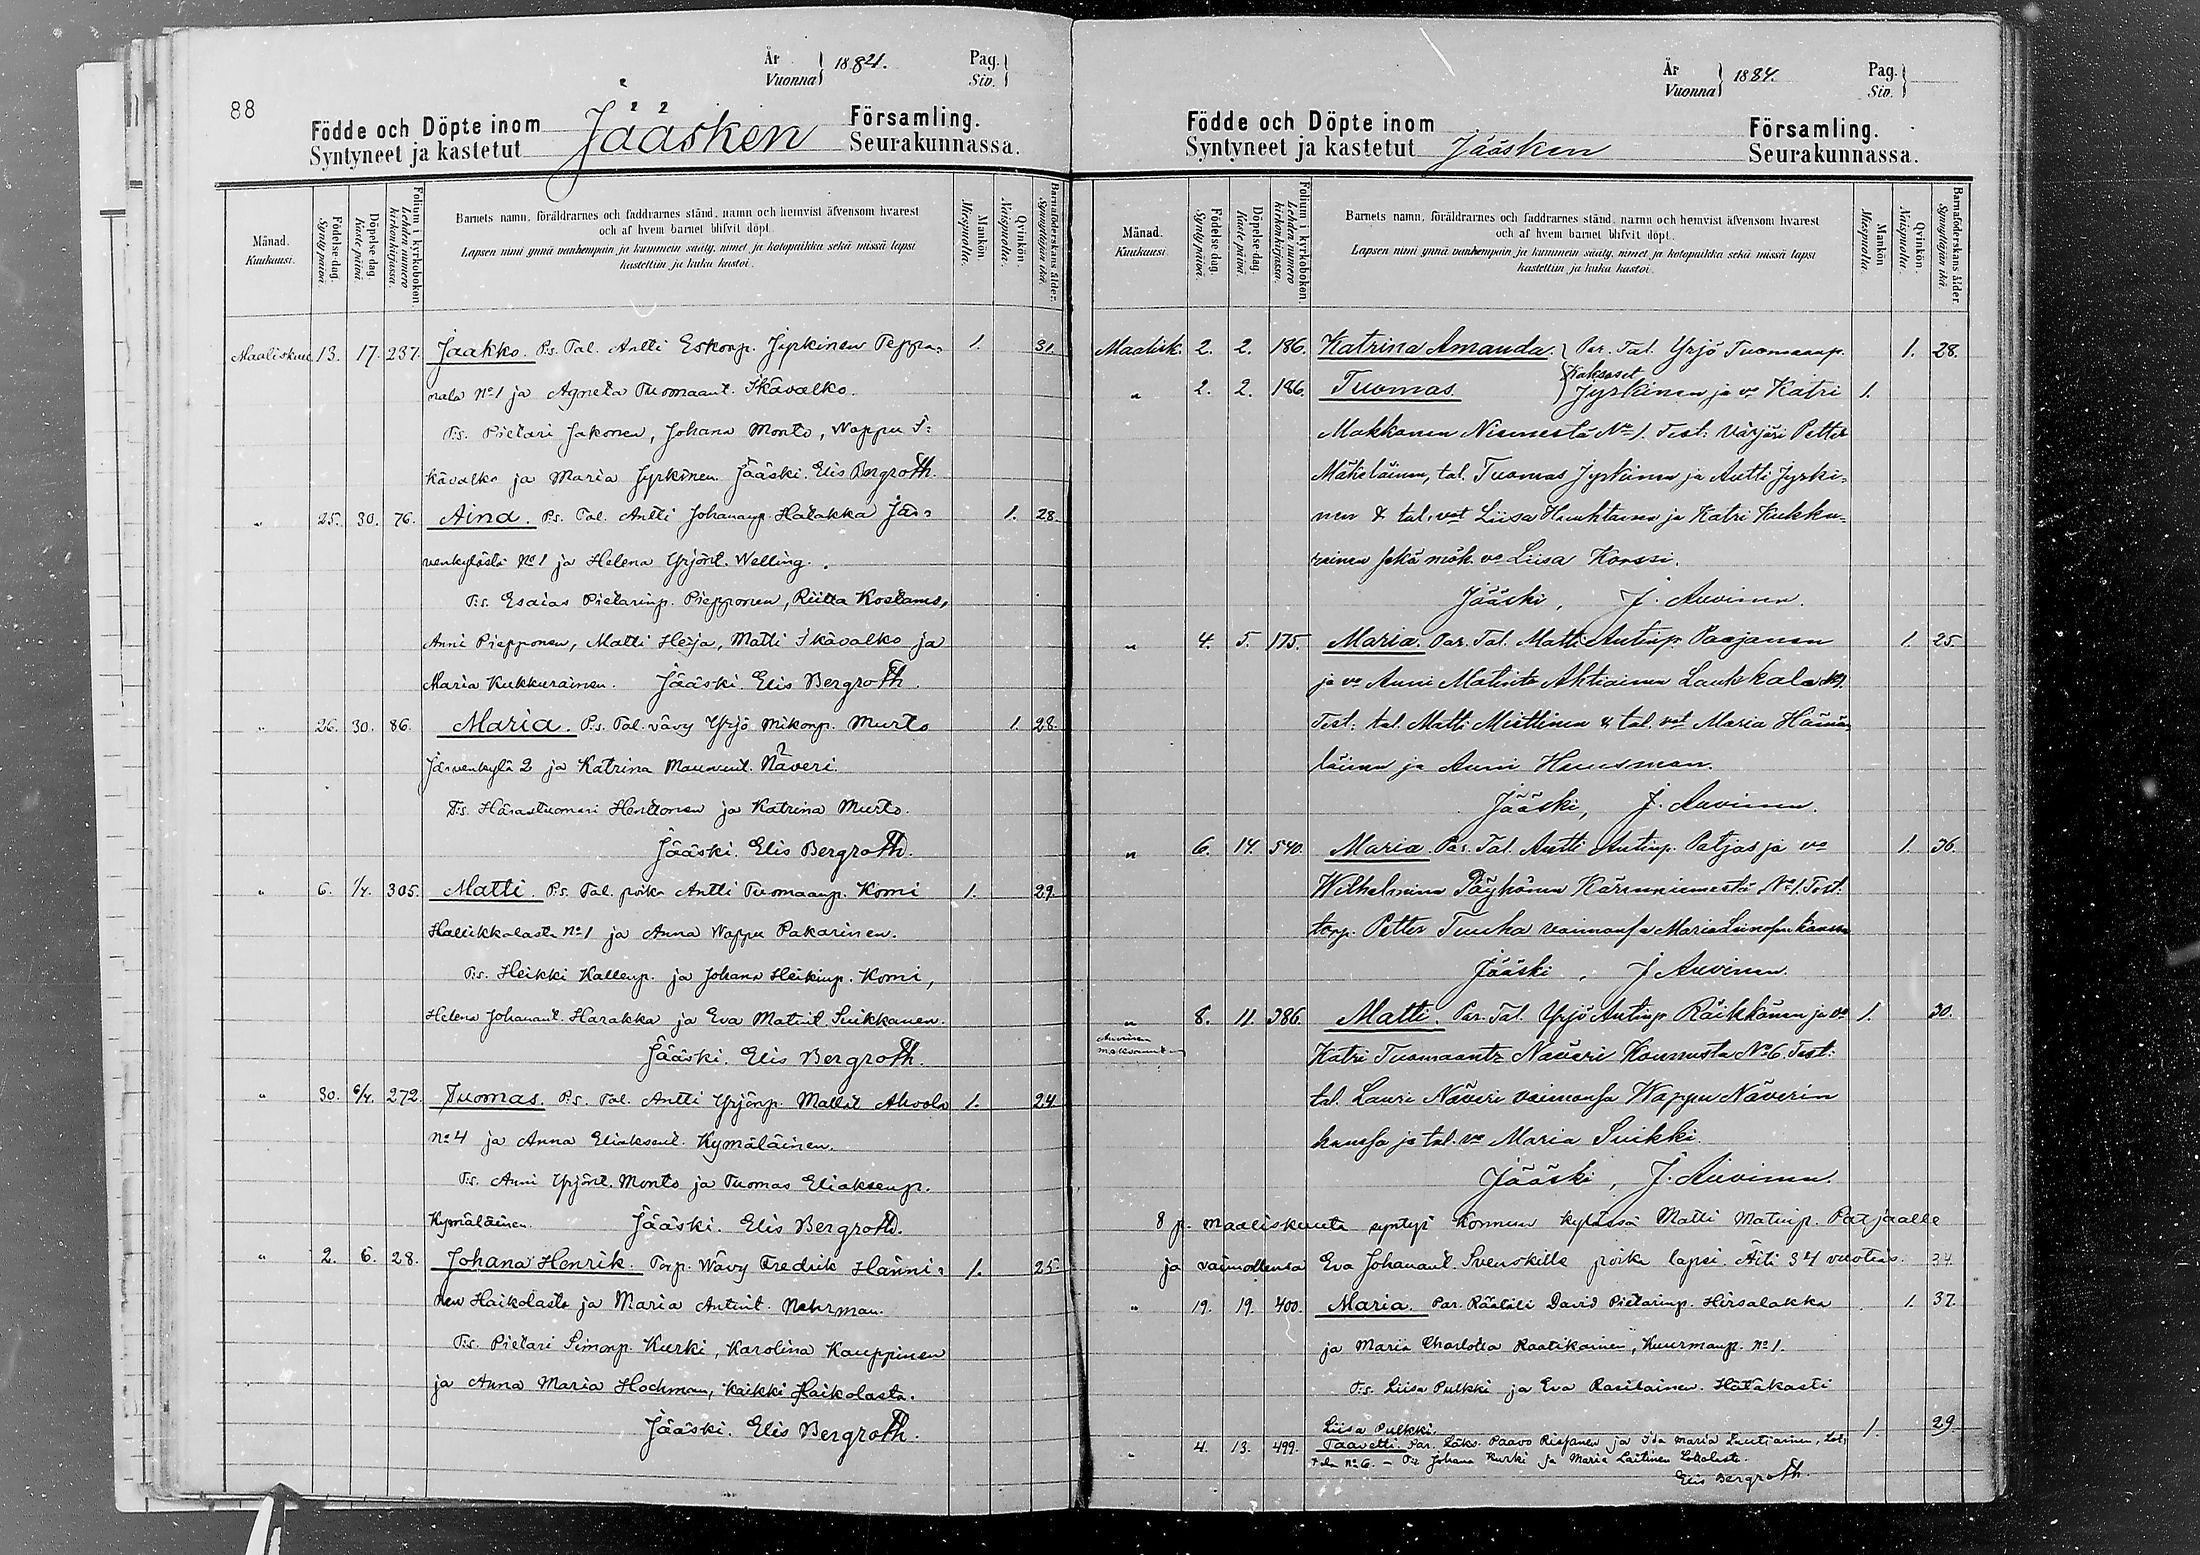 88
År
Vuonna
1884.
Pag.
Siv.
Födde och Döpte inom
Syntyneet ja kastetut
Jääsken
Församling.
Seurakunnassa.
Månad.
Kuukausi.
Födelse-dag.
Syntypäivä.
Döpelse-dag
Kastepäivä.
Folium i kyrkoboken.
Lehden numero
kirkonkirjassa.
Barnets namn, föräldrarnes och faddrarnes stånd, namn och hemvist äfvensom hvarest
och af hvem barnet blifvit döpt.
Lapsen nimi ynnä vanhempain ja kummein sääty, nimet ja kotopaikka sekä missä lapsi
kastettiin ja kuka kastoi.
Mankön.
Miespuolta.
Qvinkön.
Naispuolta.
Barnaföderskans ålder.
Synnyttäjän ikä.
Maaliskuu 13. 17. 237. Jaakko. P:s. Tal. Antti Eskonp. Jyrkinen Teppa- 1. 31.
nala No 1 ja Agneta Tuomaant. Ikävalko.
T:s. Pietari Jakonen, Johana Monto, Wappu I-
kävalko ja Maria Jyrkinen. Jääski. Elis Bergroth.
" 25. 30. 76. Aina. P:s. Tal. Antti Johananp. Hatakka Jär- 1. 28.
venkylästä No 1 ja Helena Yrjönt. Welling.
T:s. Esaias Pietarinp. Piepponen, Riitta Kostams,
Anni Piepponen, Matti Heija, Matti Ikävalko ja
Maria Kukkurainen. Jääski. Elis Bergroth.
" 26. 30. 86. Maria. P:s. Tal. vävy Yrjö Mikonp. Murto 1. 28.
Järvenkylä 2 ja Katrina Maununt. Näveri.
T:s. Härantuomari Henttonen ja Katrina Murto.
Jääski. Elis Bergroth.
" 6. 1/4. 305. Matti. P:s. Tal. poika Antti Tuomaanp. Komi 1. 29.
Hallikkalasta No 1 ja Anna Wappu Pakarinen.
T:s. Heikki Kallenp. ja Johana Heikinp. Komi,
Helena Johanant. Harakka ja Eva Matint. Suikkanen.
Jääski. Elis Bergroth.
" 30. 6/4. 272. Tuomas. P:s. Tal. Antti Yrjönp. Mattil Ahvola 1. 24
No 4 ja Anna Eliaksent. Kymäläinen.
T:s. Anni Yrjönt. Monto ja Tuomas Eliaksenp.
Kymäläinen. Jääski. Elis Bergroth.
" 2. 6. 28. Johana Henrik. Torp. Wävy Fredrik Hänni- 1. 25
nen Haikolasta ja Maria Antint. Nohrman.
T:s. Pietari Simonp. Kurki, Karolina Kauppinen
ja Anna Maria Hochman, kaikki Haikolasta.
Jääski. Elis Bergroth.
År
Vuonna
1884.
Pag.
Siv.
Födde och Döpte inom
Syntyneet ja kastetut
Jääsken
Församling.
Seurakunnassa.
Månad.
Kuukausi.
Födelse-dag.
Syntypäivä.
Döpelse-dag.
Kastepäivä.
Folium i kyrkoboken.
Lehden numero
kirkonkirjassa.
Barnets namn, föräldrarnes och faddrarnes stånd, namn och hemvist äfvensom hvarest
och af hvem barnet blifvit döpt.
Lapsen nimi ynnä vanhempain ja kummein sääty, nimet ja kotopaikka sekä missä lapsi
kastettiin ja kuka kastoi.
Mankön
Miespuolta.
Qvinkön.
Naispuolta.
Barnaföderskans ålder.
Synnyttäjän ikä.
Maalisk. 2. 2. 186. Katrina Amanda. Par. Tal. Yrjö Tuomaanp. 1. 28.
Kaksoset
" 2. 2. 186. Tuomas. Jyrkinen ja vo Katri 1.
Makkonen Niemestä No 1. Test: Värjäri Petter
Mäkeläinen, tal. Tuomas Jyrkinen ja Antti Jyrki-
nen & tal. vat Liisa Huuhtanen ja Katri Kukku-
rainen sekä mök. vo Liisa Korssi.
Jääski, J. Auvinen.
" 4. 5. 175. Maria. Par. Tal. Matti Antinp. Paajanen 1. 25
ja vo Anni Matintr Ahtiainen Laukkala No 1.
Test: tal. Matti Miettinen & tal. vat Maria Hämä-
läinen ja Anni Hansman.
Jääski, J. Auvinen.
" 6. 14. 540. Maria. Par. Tal. Antti Antinp. Patjas ja vo 1. 36.
Wilhelmina Pöyhönen Kärmeniemestä No 1. Test.
torp. Petter Tuuha vaimonsa Maria kanssa
Jääski, J. Auvinen.
" 8. 11. 386. Matti. Par. Tal. Yrjö Antinp. Räikkönen ja vo 1. 30.
Auvinen
Katri Tuomaantr Näveri Konnusta No 6. Test:
tal. Lauri Näveri vaimonsa Wappu Näverin
kanssa ja tal. vo Maria Suikki.
Jääski, J. Auvinen.
8 p. maaliskuuta syntyi Konnun kylässä Matti Matinp. Patjaalle
ja vaimollensa Eva Johanant. Svenskille poika lapsi. Äiti 34 vuotias. 34.
" 19. 19. 400. Maria. Par. Räätäli David Pietarinp. Hirsalakka 1. 37.
ja Maria Charlotta Raatikainen, Kuurmanp. No 1.
T:s. Liisa Pulkki ja Eva Rasilainen. Hätäkasti
Liisa Pulkki.
" 4. 13. 499. Taavetti. Par. Paavo ja Ida Maria 1. 29.
No 6. – T:s Johana Kurki ja Maria Laitinen
Elis Bergroth.